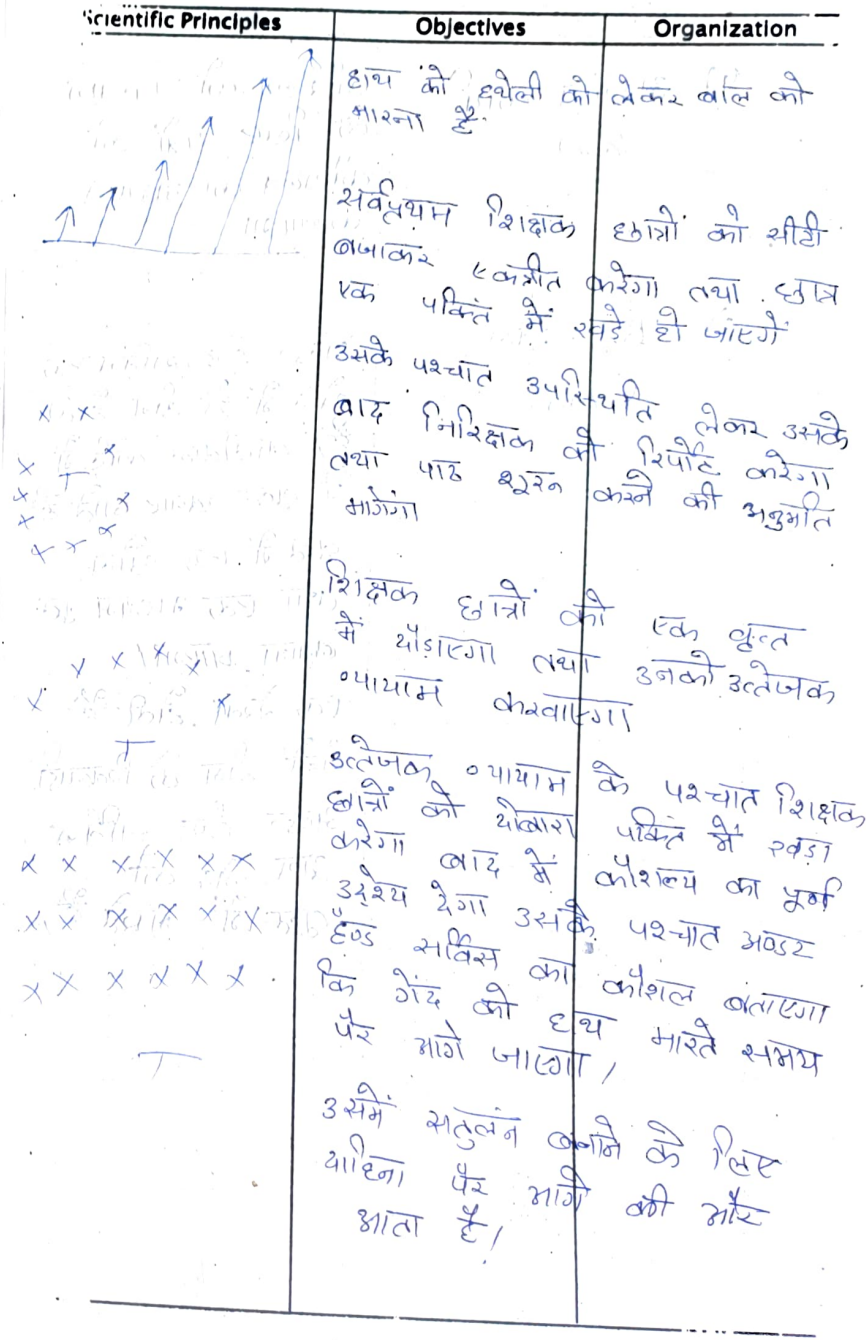 Scientific Principles Objectives Organization
हाथ की हथेली को लेकर बॉल को
मारना है
सर्वप्रथम शिक्षक छात्रों को सीटी
बजाकर एकत्रीत करेगा तथा छात्र
एक पक्तिं में खड़े हो जाएगें
उसके पश्चात उपस्थिति लेकर उसके
बाद निरिक्षक को रिर्पोट करेगा
तथा पाठ शुरू करने की अनुमति
मागेगा
शिक्षक छात्रों को एक वृत्त
में दौड़ाएगा तथा उनको उत्तेजक
व्यायाम करवाएगा
उत्तेजक व्यायाम के पश्चात शिक्षक
छात्रों को दोबारा पक्तिं में खड़ा
करेगा बाद में कौशल्य का पूर्ण
उद्देश्य देगा उसके पश्चात अण्डर
हैण्ड सर्विस का कौशल बताएगा
कि गेंद को हाथ मारते समय
पैर आगे जाएगा,
उसमें सतुलंन बनाने के लिए
दाहिना पैर आगे की और
आता है।
X X
X
X T
X X
X
X X X
X X X X
X X
T
X X X X X X
X X X X X X
X X X X X X
T